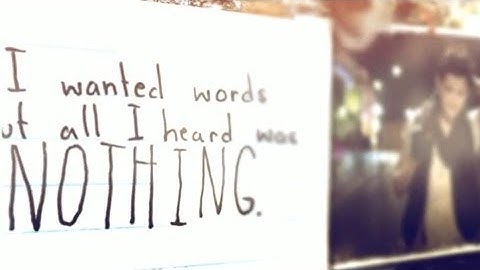 I wanted words
ut all I heard was
NOTHING.